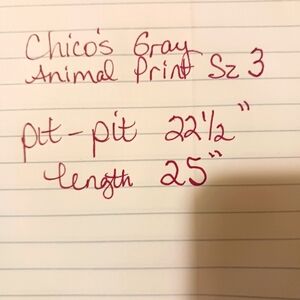 Chico's Gray
Animal Print Sz 3
pit-pit 22 1/2"
length 25"